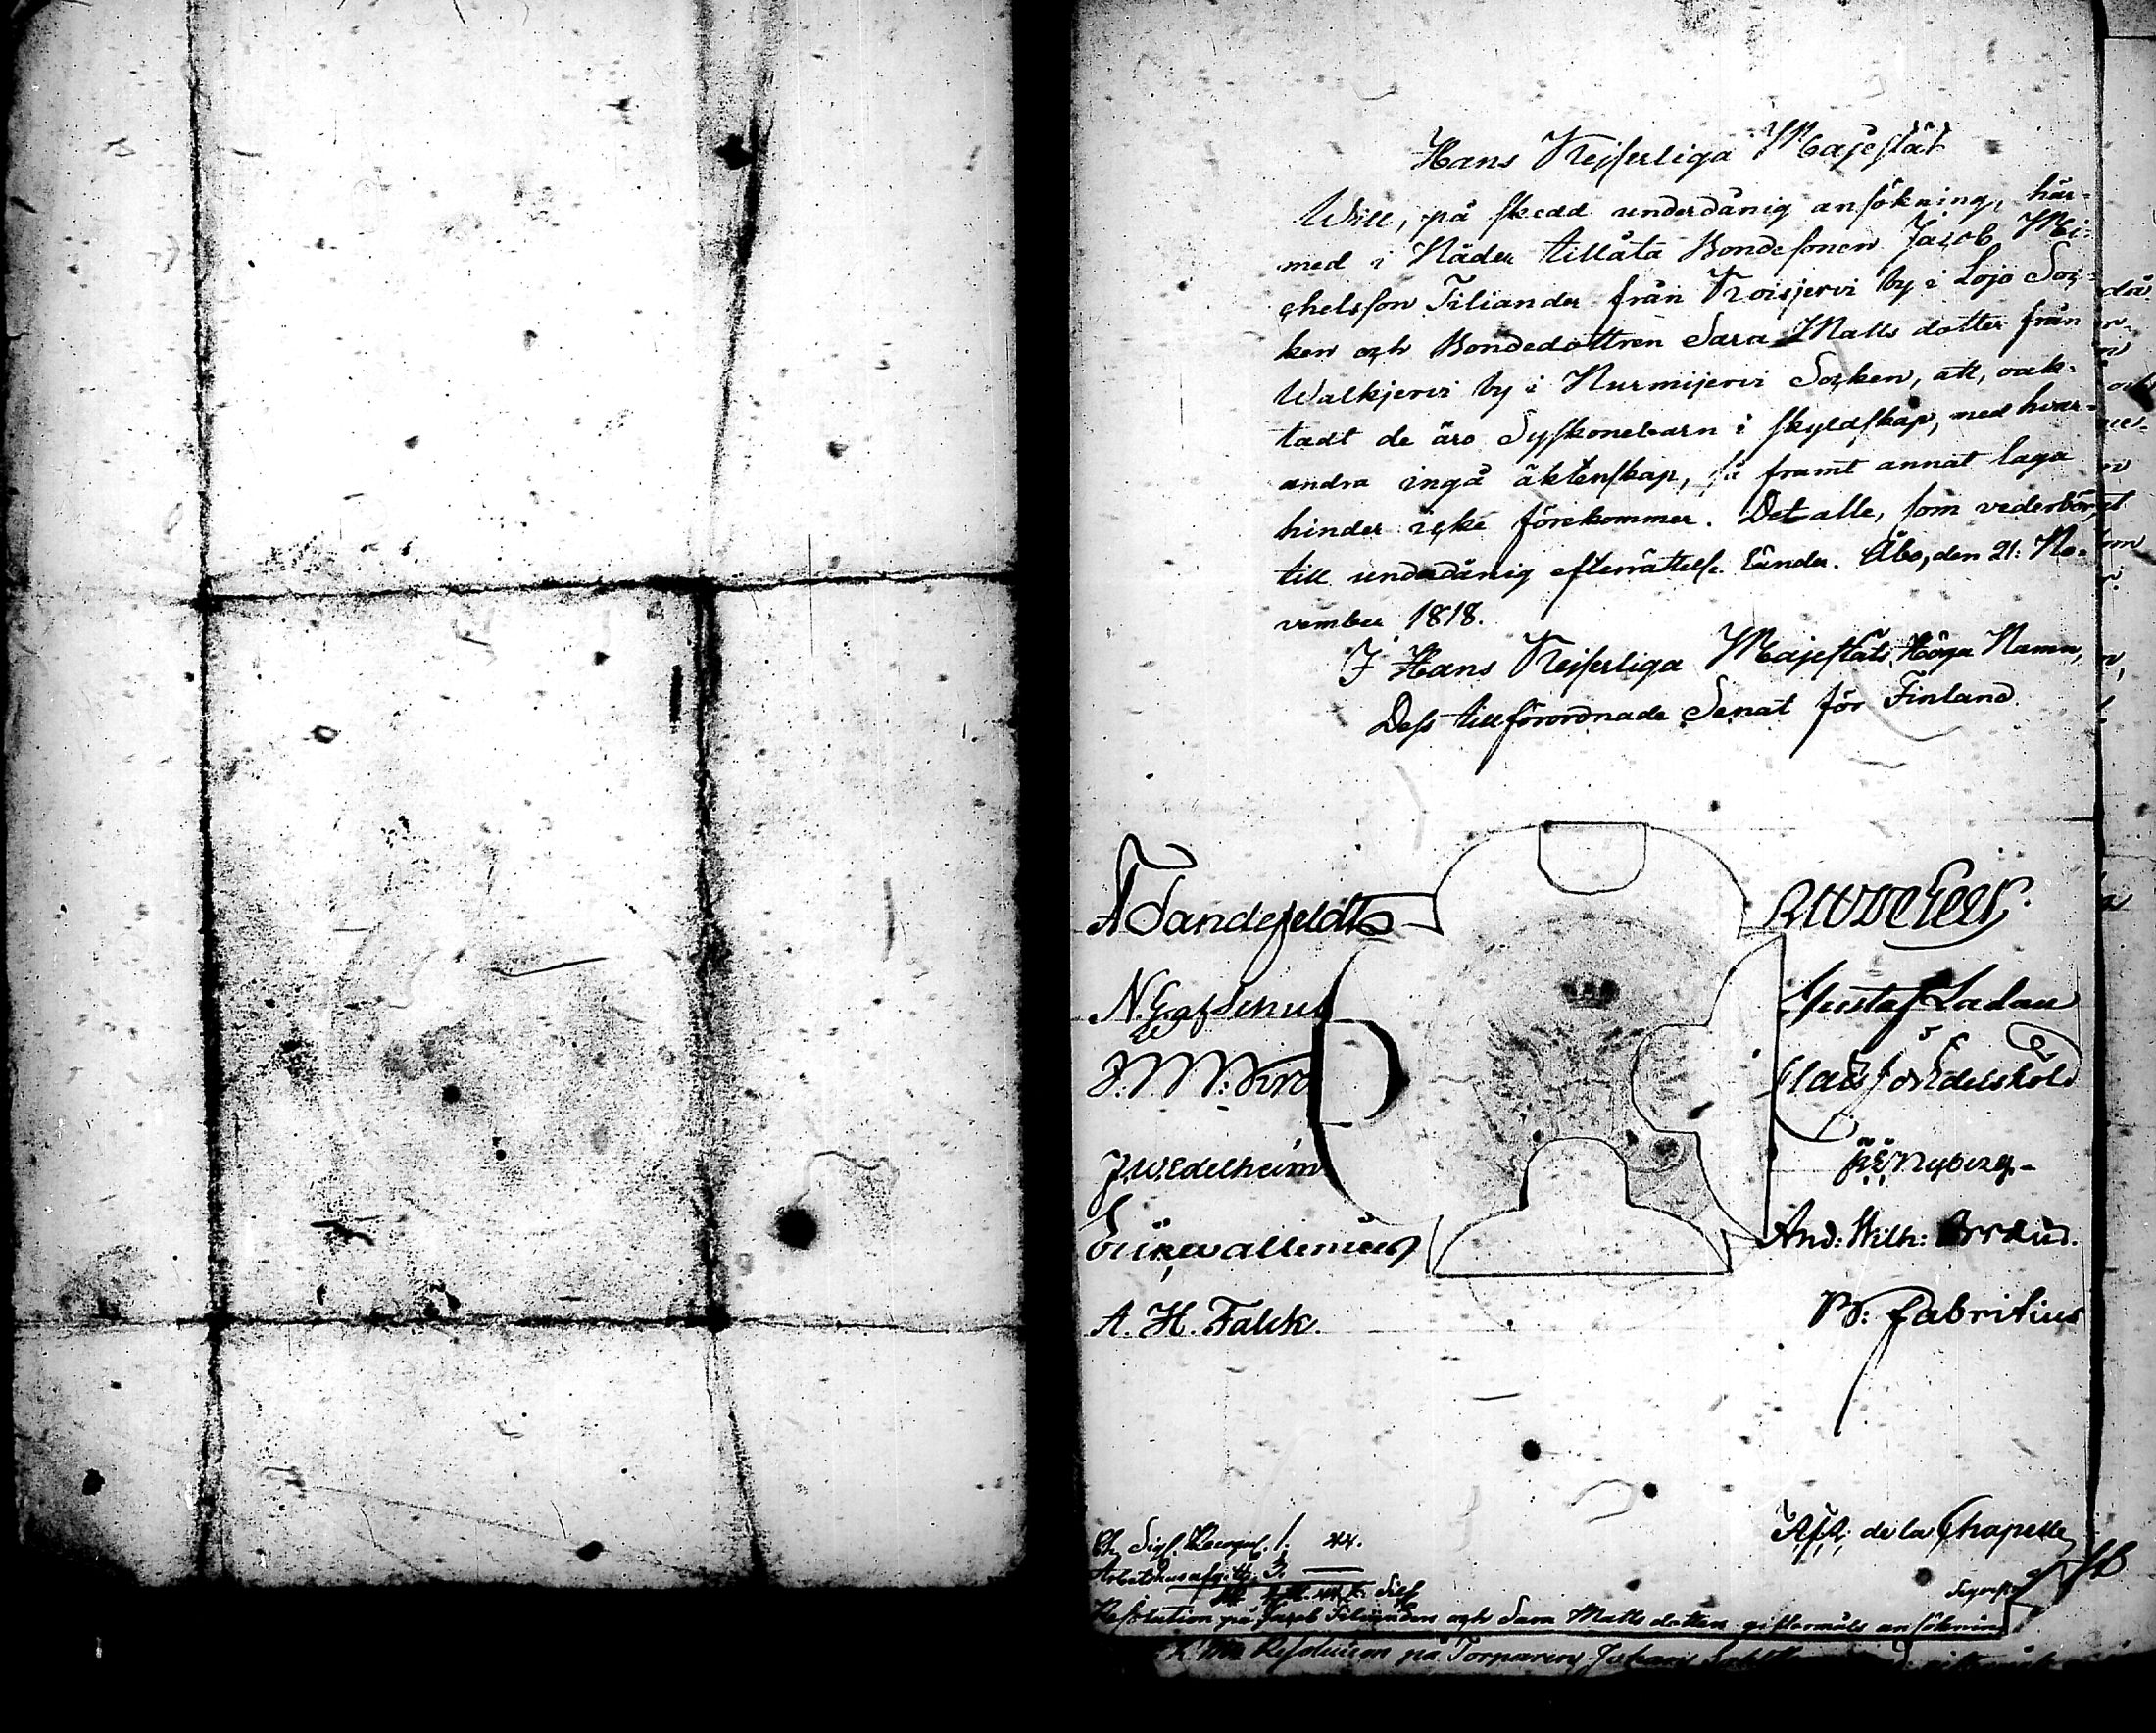 Hans Kejserliga Majestät
Will, på skedd underdånig ansökning, här-
med i Nåder tillåta Bondesonen Jacob Mi-
chelsson Tiliander från Koisjervi by i Lojo Soc-
ken och Bondedottren Sara Matts dotter från
Walkjervi by i Nurmijervi Socken, att, oak-
tadt de äro Syskonebarn i skyldskap, med hvar-
andra ingå äktenskap, så framt annat laga
hinder icke förekommer. Det alle, som vederbör,
till underdånig efterrättelse länder. Åbo, den 21. No-
vember 1818.
I Hans Kejserliga Majestäts Höga Namn,
Dess tillförordnade Senat för Finland.
Gustaf Ladau
Claes Joh Edelsköld
J. W. Edelheim
Nyberg
And: Wilh:
A. H. Falck.
Fabritius
de la Chapelle
1. 44.
3.
Resolution på Jacob Tilianders och Sara Matts dotters giftermåls ansökning
Resolution på Torparen Johan